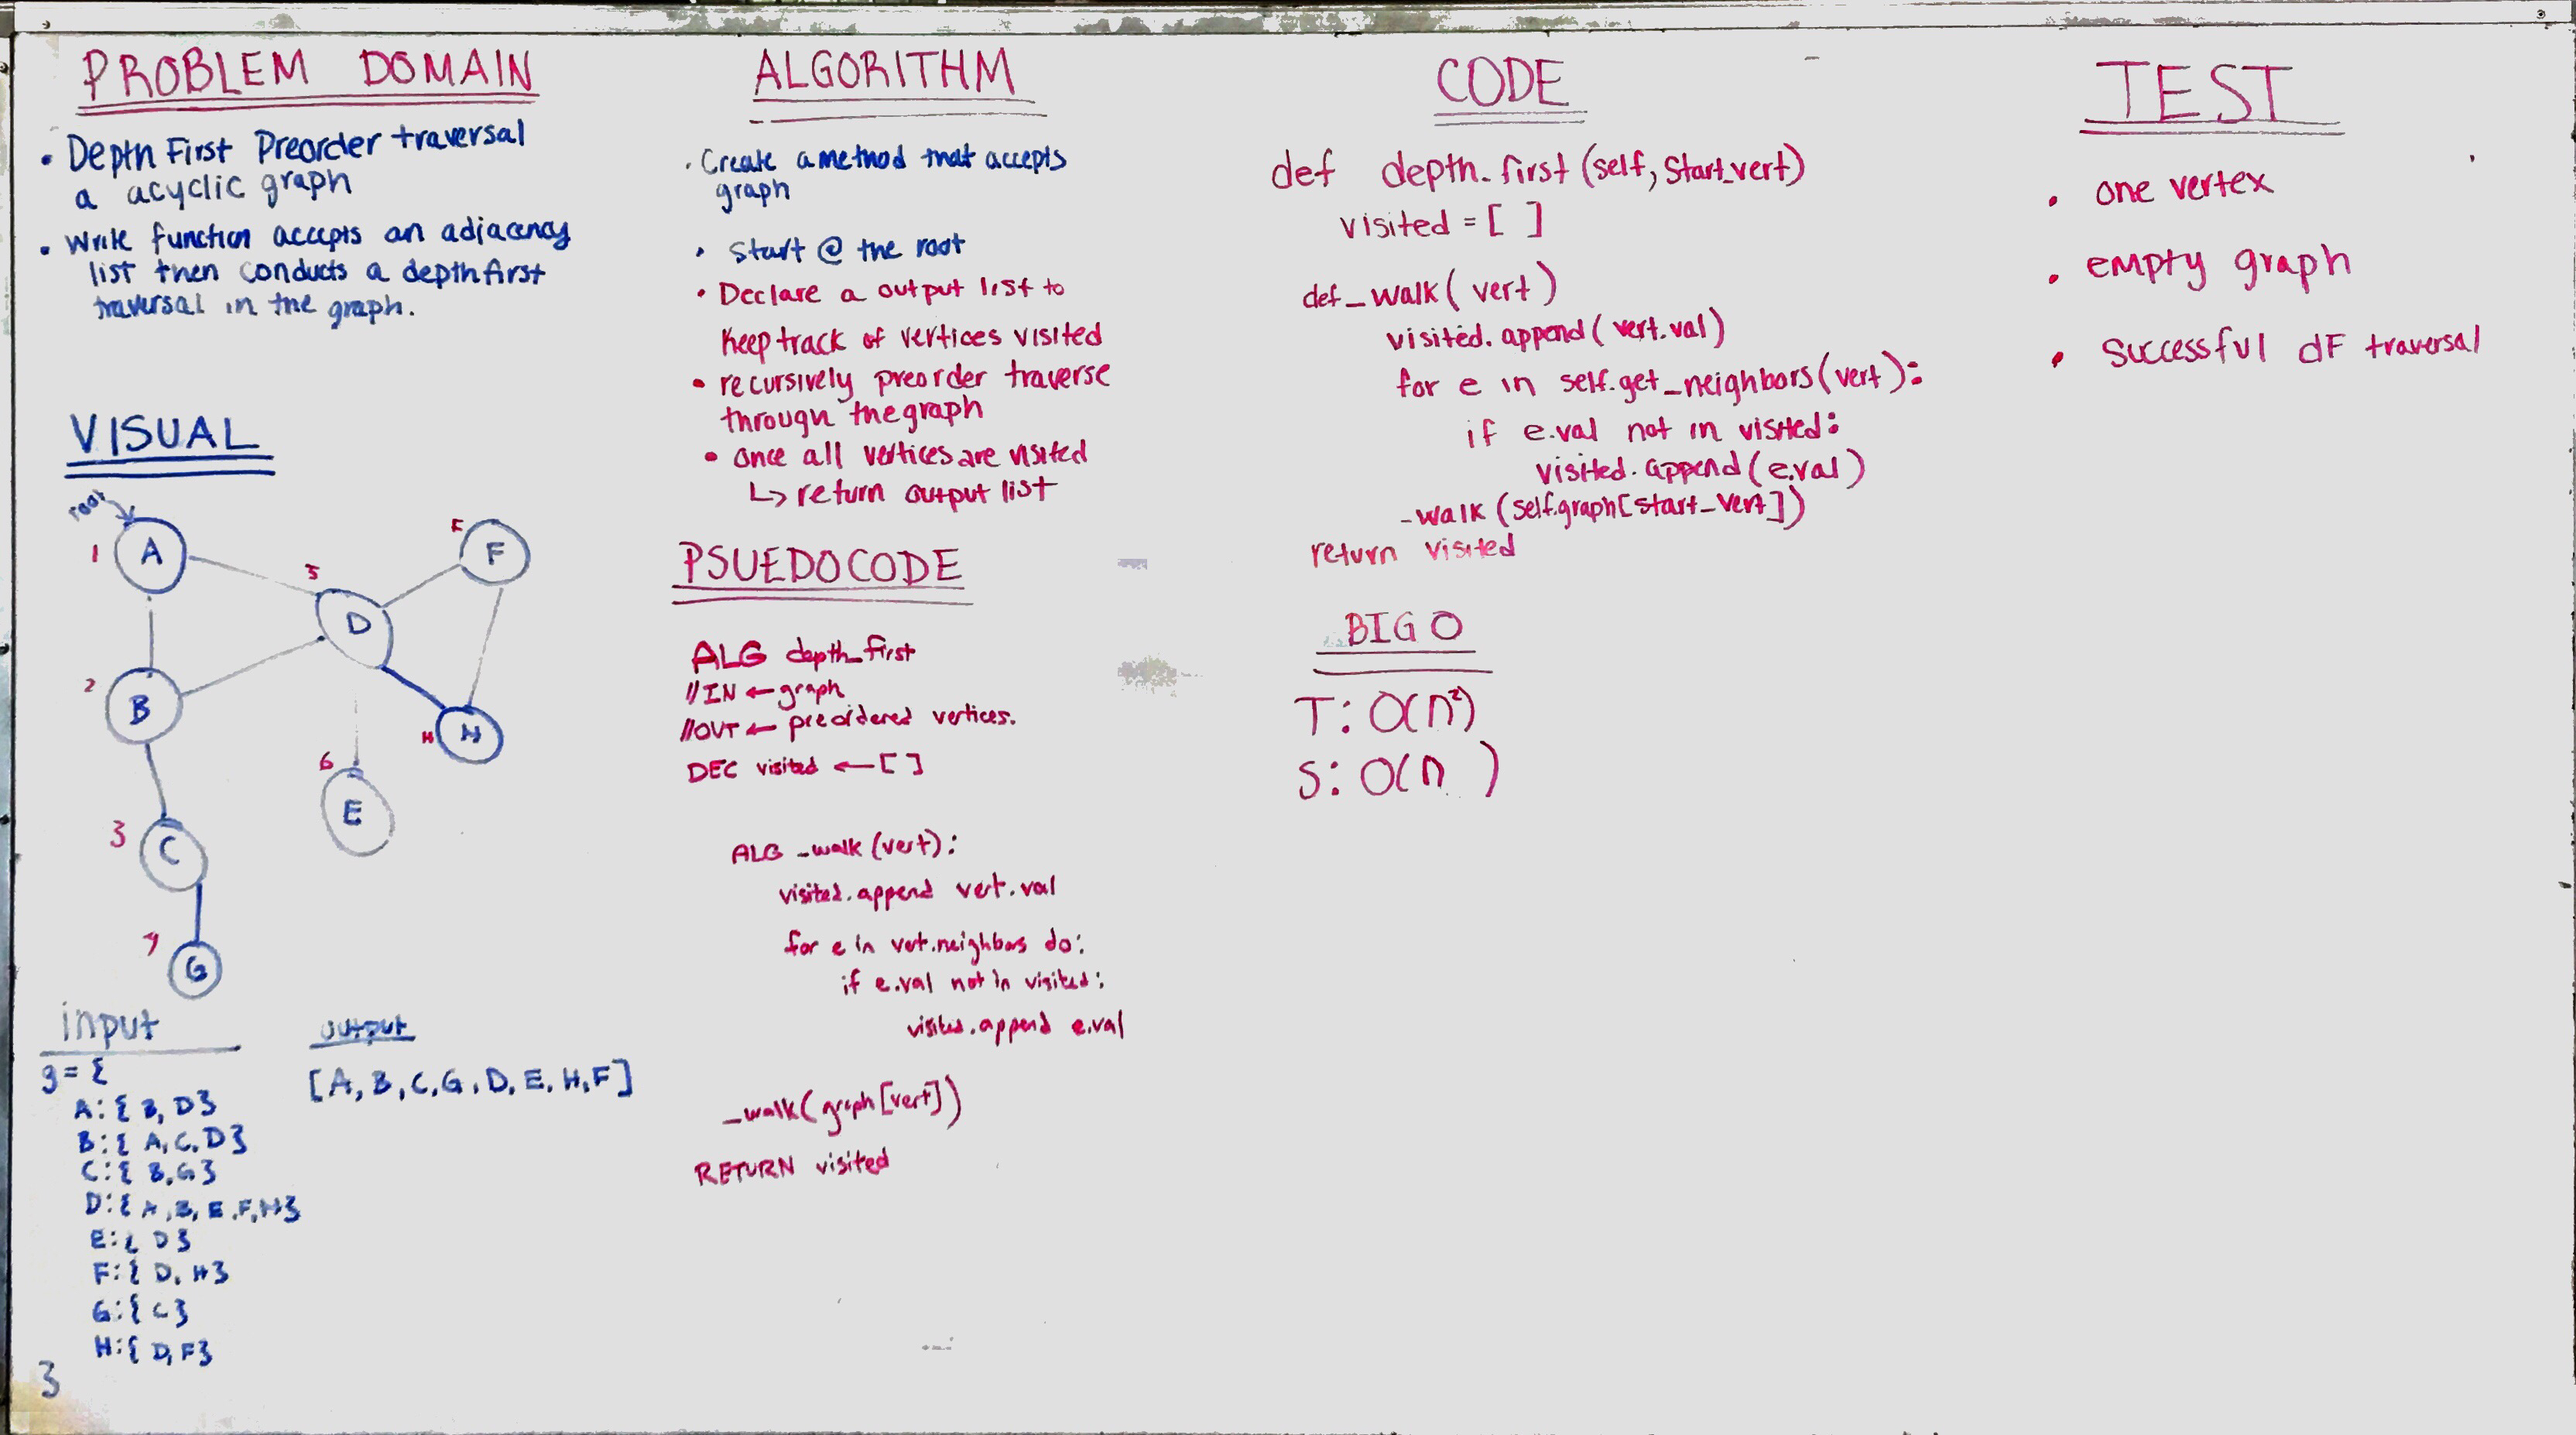 PROBLEM DOMAIN
• Depth First Preorder traversal
a acyclic graph
• Write function accepts an adjacency
list then conducts a depth first
traversal in the graph.
VISUAL
root
1
A
2
B
3
C
G
5
D
6
E
F
F
H
H
input
g = {
A: { B, D}
B: { A, C, D}
C: { B, G}
D: { A, B, E, F, H}
E: { D}
F: { D, H}
G: { C}
H: { D, F}
}
output
[A, B, C, G, D, E, H, F]
ALGORITHM
• Create a method that accepts
graph
• Start @ the root
• Declare a output list to
keep track of vertices visited
• recursively preorder traverse
through the graph
• once all vertices are visited
↳ return output list
PSUEDOCODE
ALG depth_first
//IN ← graph
//OUT ← preordered vertices.
DEC visited ← [ ]
ALG _walk (vert):
visited.append vert.val
for e in vert.neighbors do:
if e.val not in visited:
visited.append e.val
_walk( graph [vert])
RETURN visited
CODE
def depth_first (self, Start_vert)
visited = [ ]
def _walk ( vert )
visited.append ( vert.val)
for e in self.get_neighbors (vert):
if e.val not in visited:
visited.append (e.val)
_walk (self.graph[start_vert])
return visited
BIG O
T: O(n²)
S: O(n )
TEST
• one vertex
• empty graph
• Successful dF traversal